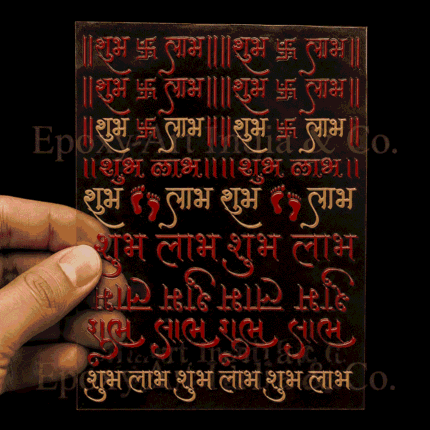 ॥शुभ 卐 लाभ॥॥शुभ 卐 लाभ॥
॥शुभ 卐 लाभ॥॥शुभ 卐 लाभ॥
॥शुभ 卐 लाभ॥॥शुभ 卐 लाभ॥
Epoxy Art India & Co.
॥शुभ लाभ॥॥शुभ लाभ॥
शुभ लाभ शुभ लाभ
शुभ लाभ शुभ लाभ
शुभ लाभ शुभ लाभ
शुभ लाभ शुभ लाभ
शुभ लाभ शुभ लाभ शुभ लाभ
Epoxy Art India & Co.